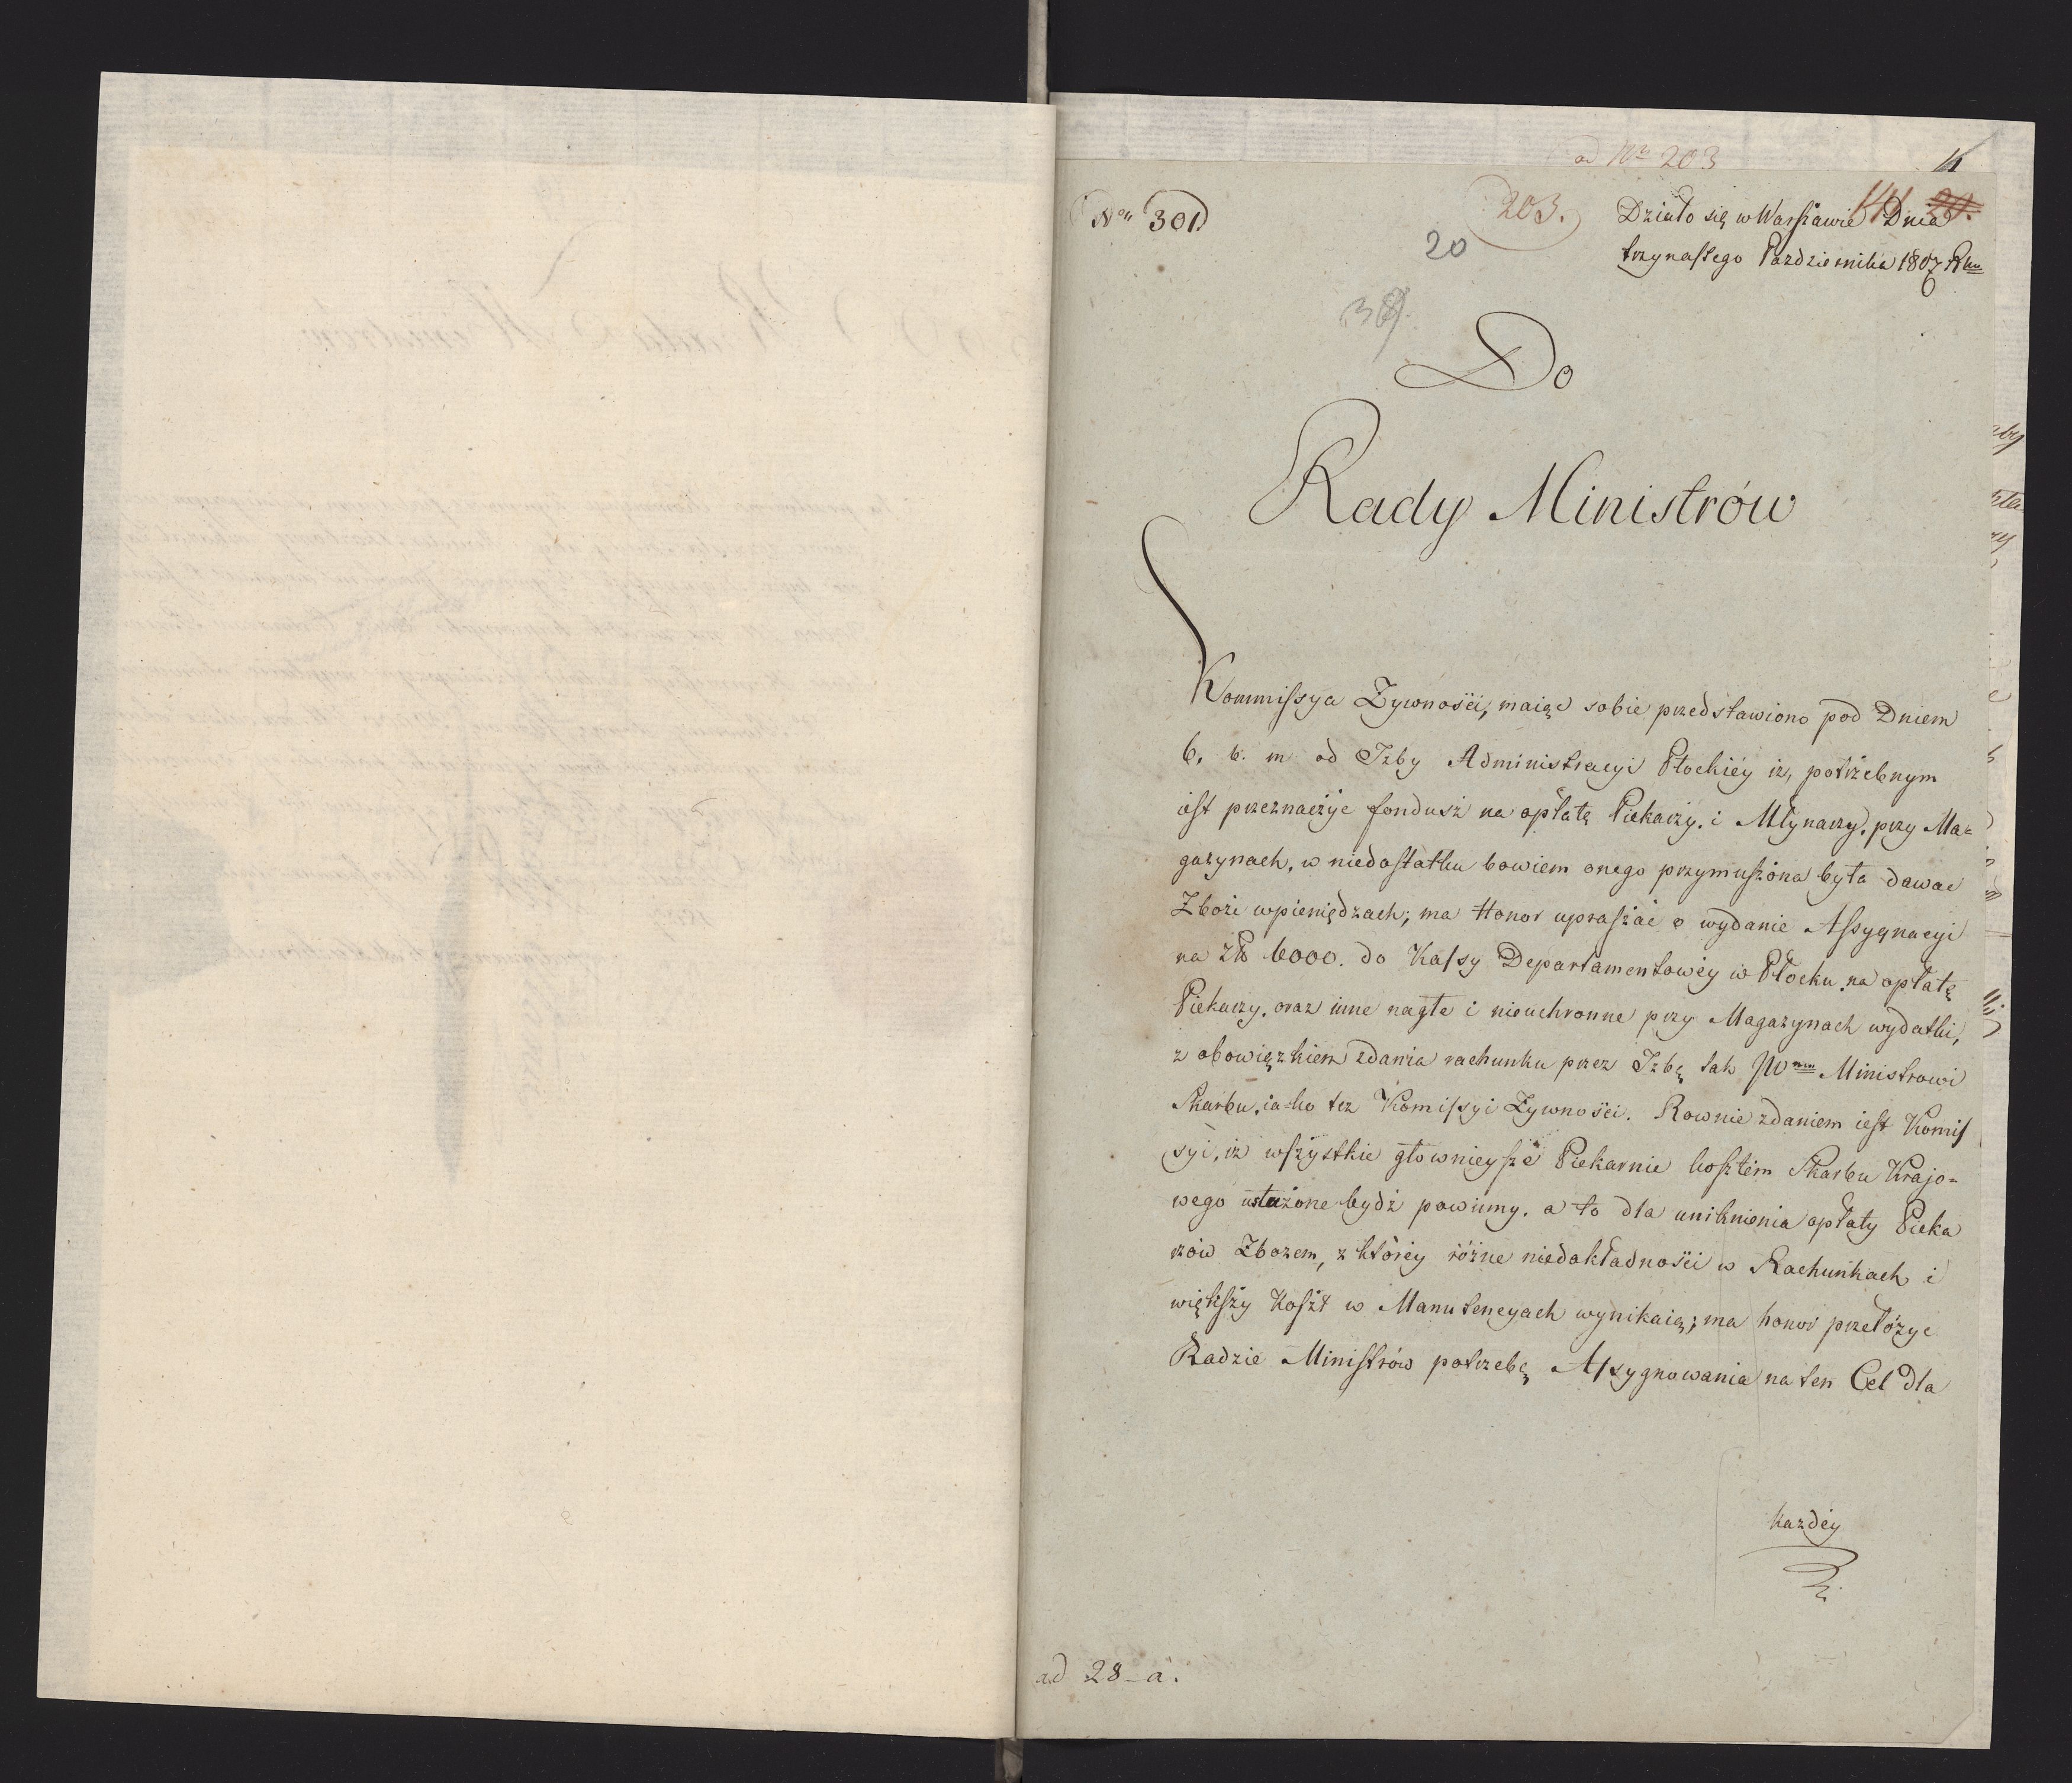 ad Nrm 203
Nro 301
203.
20
Działo się w Warszawie Dnia
trzynastego Pazdziernika 1807 Rku
Do
Rady Ministrów
Kommissya Zywnosći, maiąc sobie przedstawiono pod Dniem
6. b. m od Izby Administracyi Płockiéy iz, potrzebnym
iest przeznaczyc fondusz na opłatę Piekarzy. i Młynarzy, przy Ma=
gazynach, w niedostatku bowiem onego przymuszona była dawac
Zboże w pieniędzach; ma Honor upraszać o wydanie Assygnacyi
na Zł 6000. do Kassy Departamentowéy w Płocku na opłatę
Piekarzy. oraz inne nagłe i nieuchronne przy Magazynach wydatki,
z obowiązkiem zdania rachunku przez Izbę tak JWmu Ministrowi
Skarbu, ia=ko tez Komissyi Zywnosći. Rownie zdaniem iest Komis
syi, iz wszystkie głownieysze Piekarnie kosztem Skarbu Krajo=
wego bydź powinny. a to dla uniknienia opłaty Pieka
rzów Zbozem, z któréy różne niedokładnosći w Rachunkach i
większy Koszt w Manutencyach wynikaią; ma honor przełożyc
Radzie Ministrów potrzebę Assygnowania na ten Cel dla
kazdéy
ad 28-a.